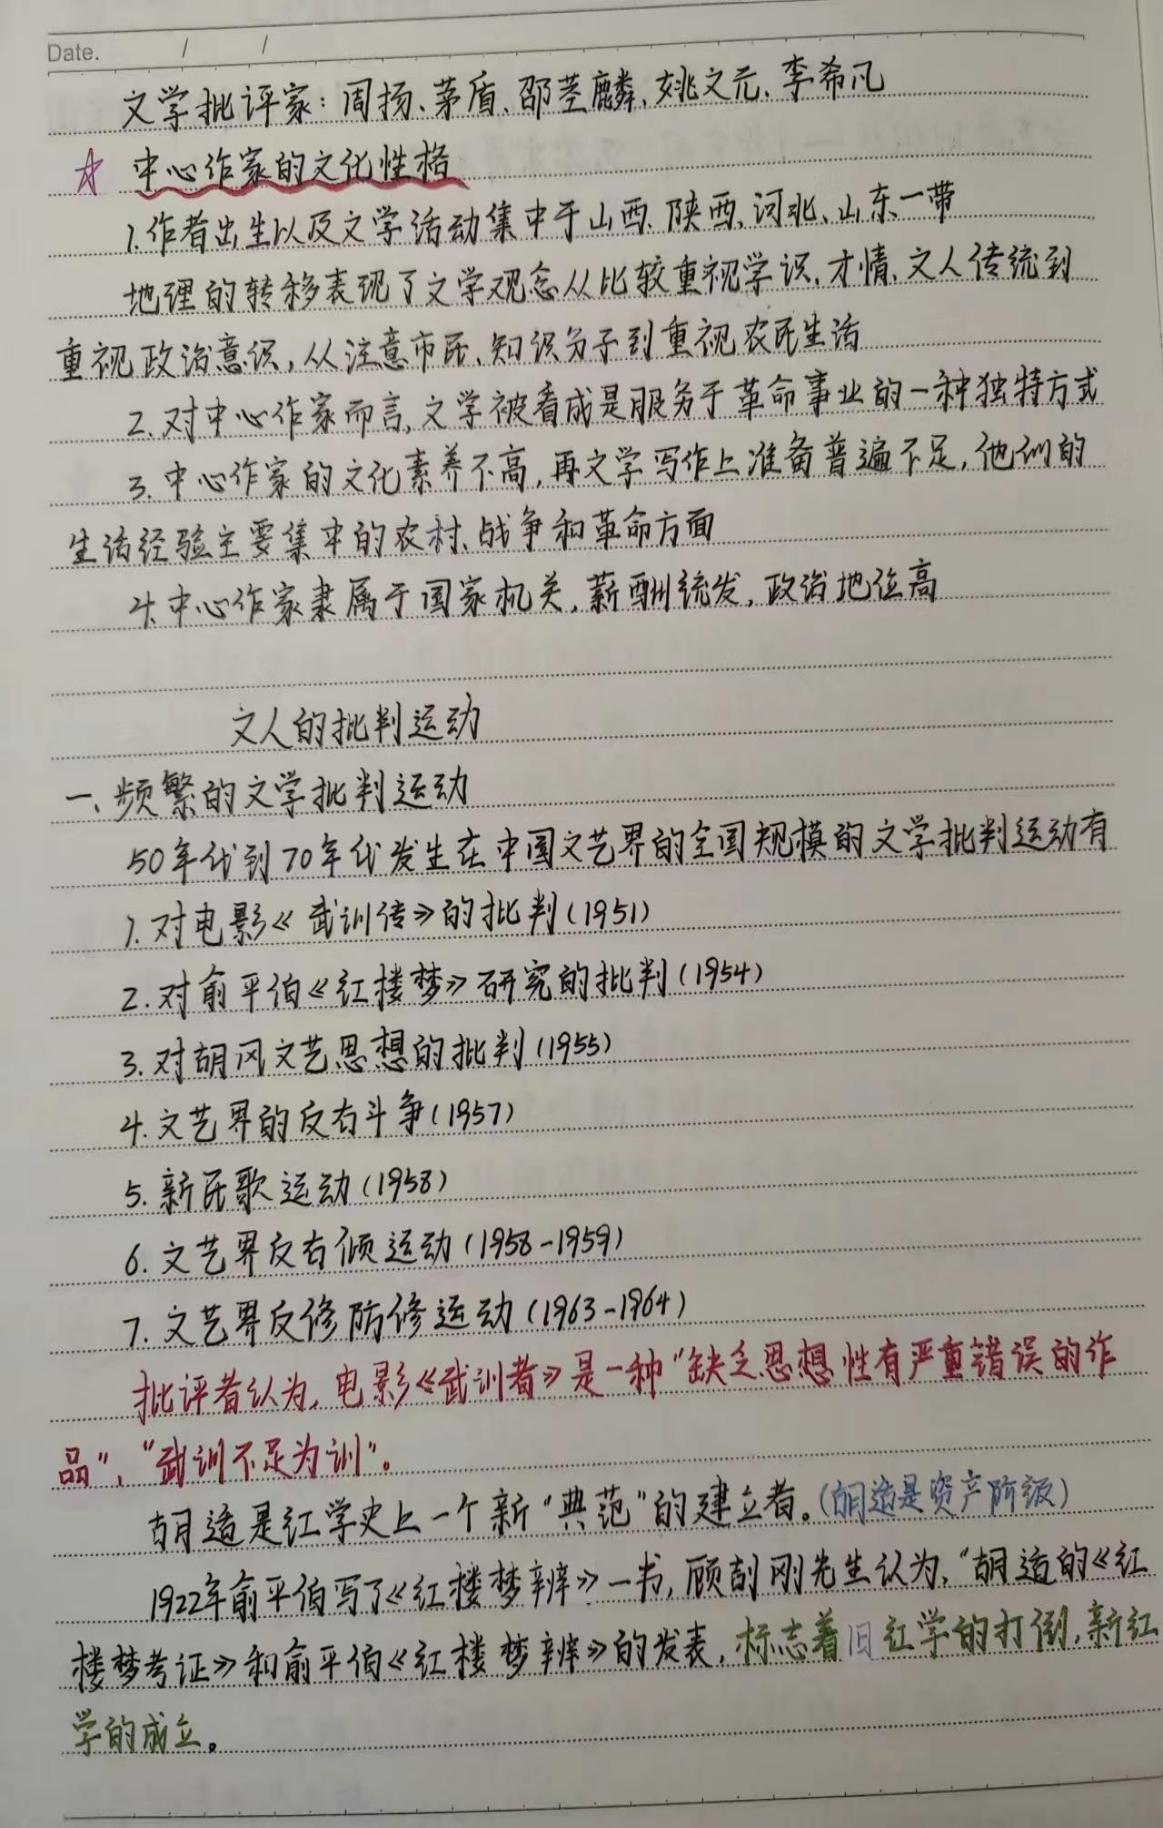 Date. / /
文学批评家：周扬、茅盾、邵荃麟、姚文元、李希凡
☆ 中心作家的文化性格
1.作者出生以及文学活动集中于山西、陕西、河北、山东一带
地理的转移表现了文学观念从比较重视学识、才情、文人传统到
重视政治意识，从注意市民、知识分子到重视农民生活
2.对中心作家而言，文学被看成是服务于革命事业的一种独特方式
3.中心作家的文化素养不高，再文学写作上准备普遍不足，他们的
生活经验主要集中的农村、战争和革命方面
4.中心作家隶属于国家机关，薪酬统发，政治地位高
文人的批判运动
一、频繁的文学批判运动
50年代到70年代发生在中国文艺界的全国规模的文学批判运动有
1.对电影《武训传》的批判(1951)
2.对俞平伯《红楼梦》研究的批判(1954)
3.对胡风文艺思想的批判(1955)
4.文艺界的反右斗争(1957)
5.新民歌运动(1958)
6.文艺界反右倾运动(1958-1959)
7.文艺界反修防修运动(1963-1964)
批评者认为，电影《武训者》是一种“缺乏思想性有严重错误的作
品”，“武训不足为训”。
胡适是红学史上一个新“典范”的建立者。(胡适是资产阶级)
1922年俞平伯写了《红楼梦辨》一书，顾刮刚先生认为，“胡适的《红
楼梦考证》和俞平伯《红楼梦辨》的发表，标志着旧红学的打倒，新红
学的成立。